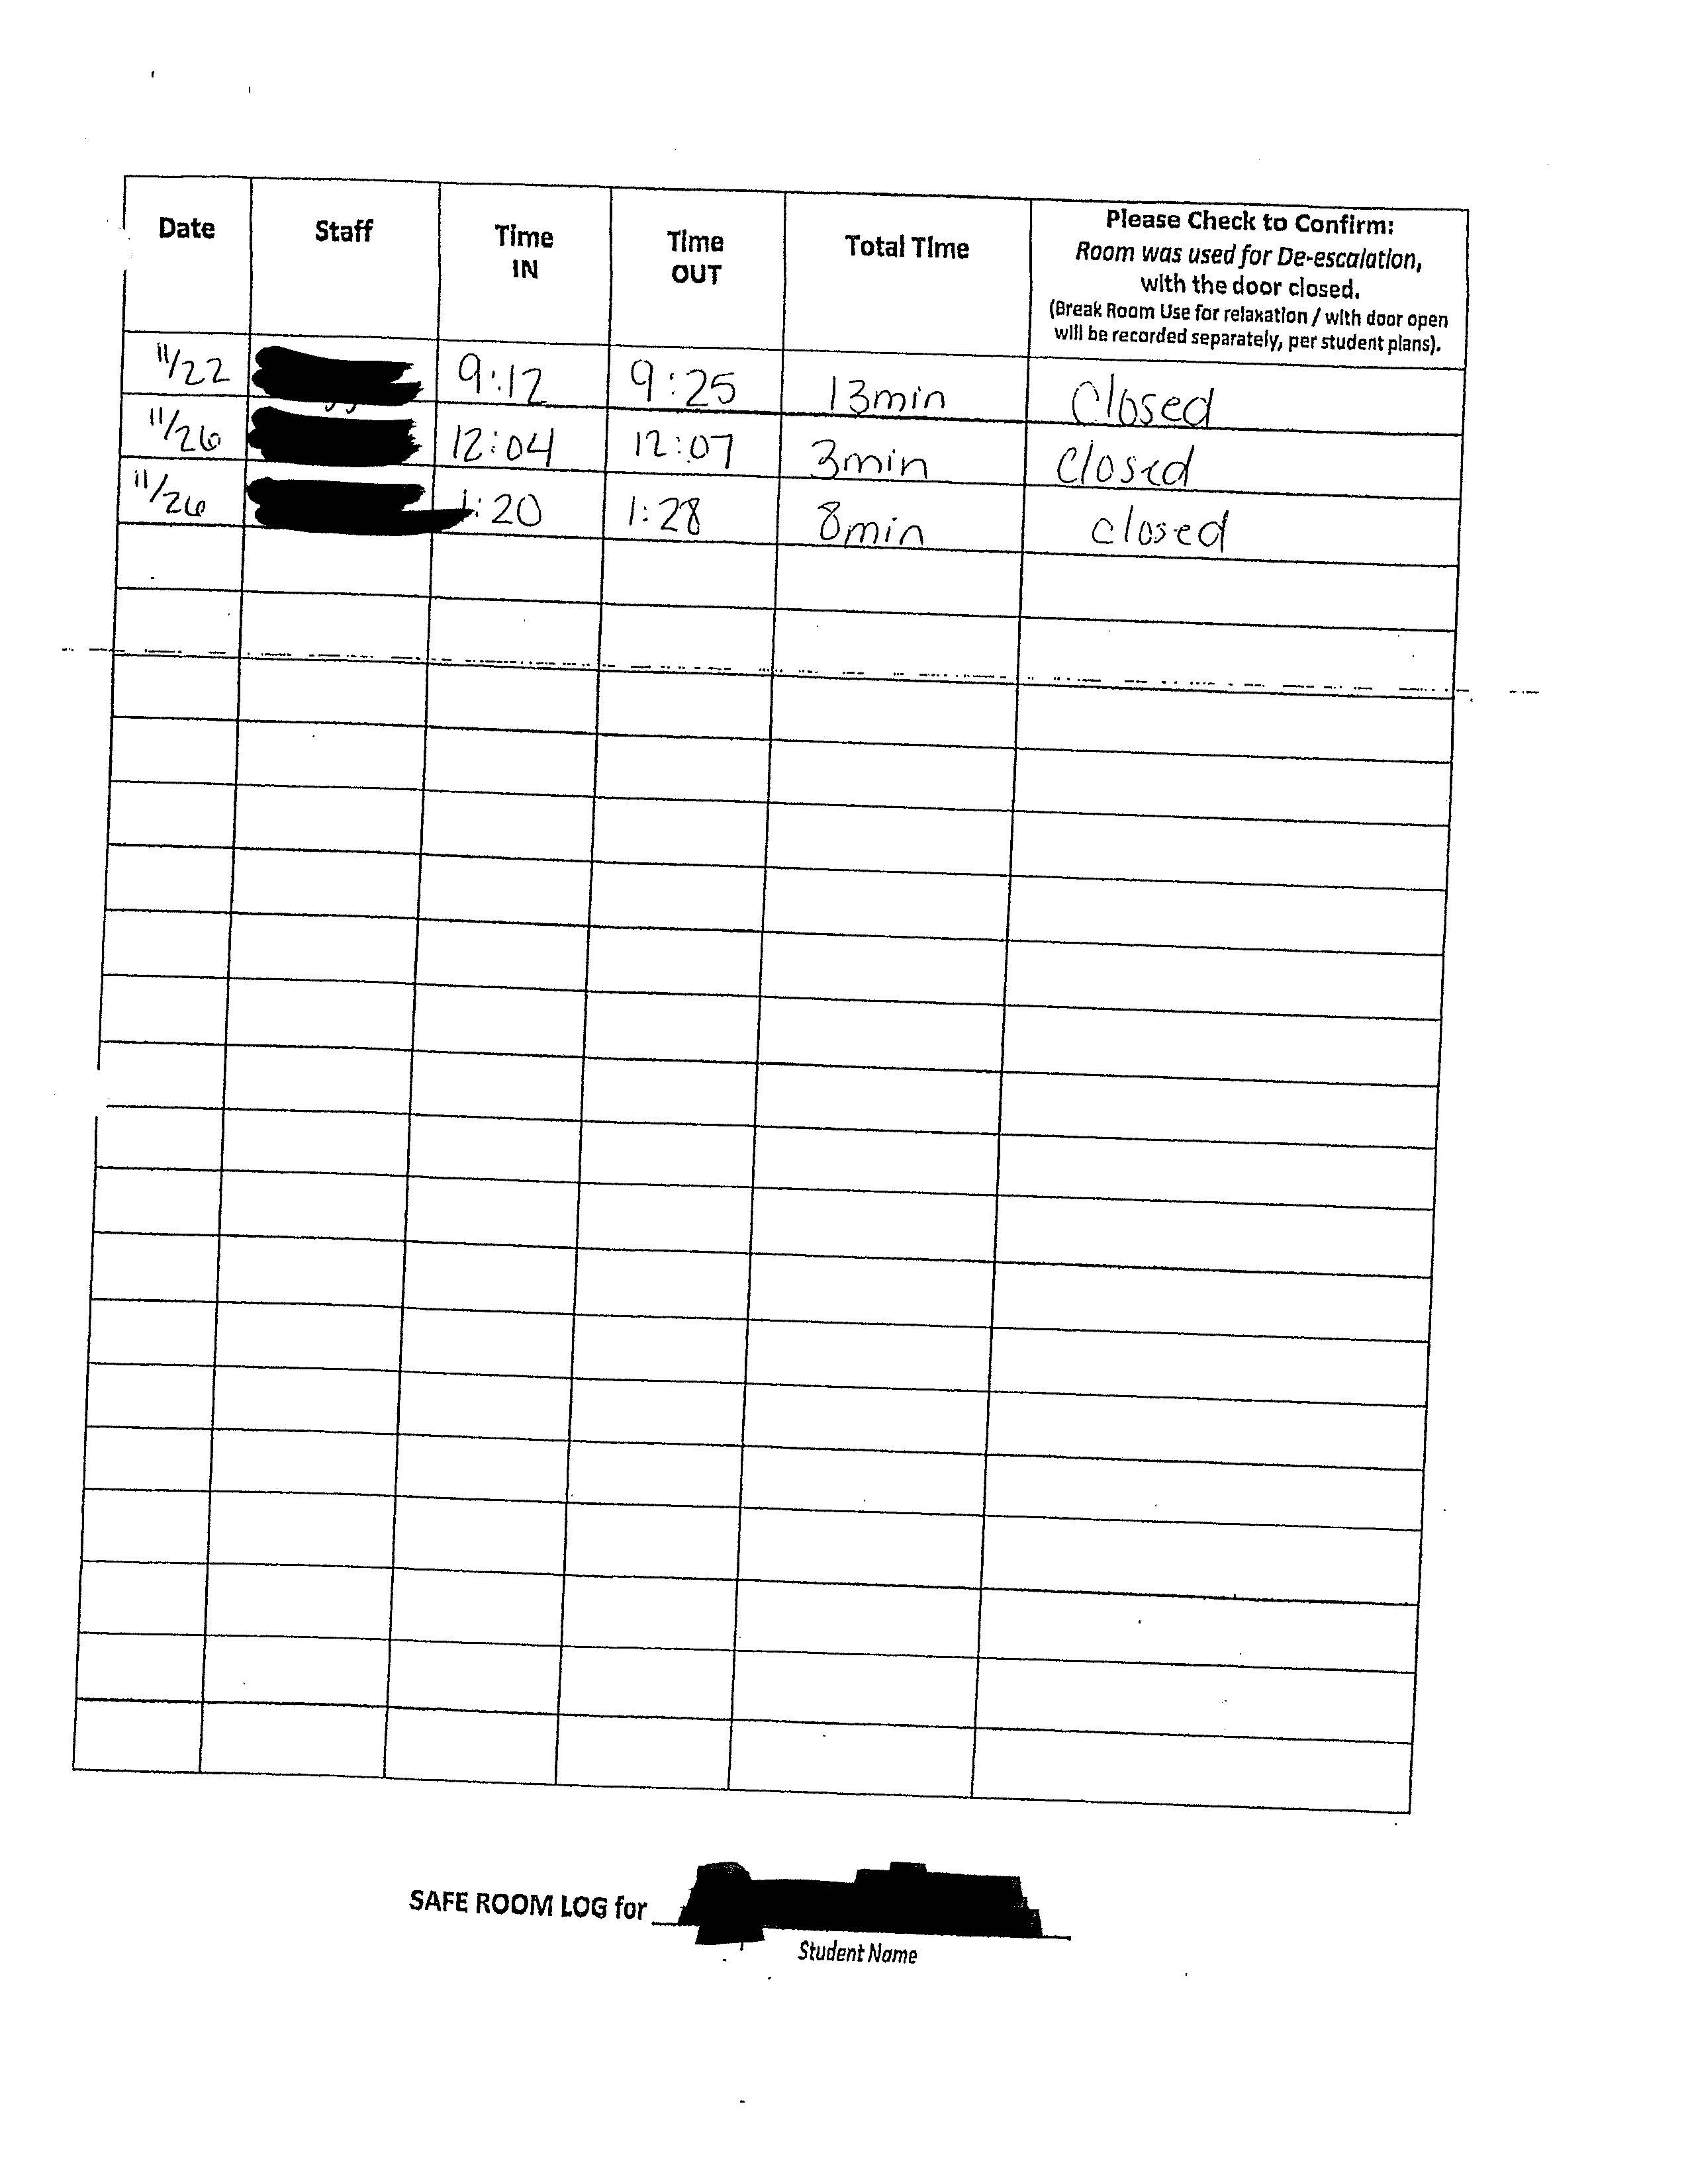 Date Staff Time IN Time OUT Total Time Please Check to Confirm:
Room was used for De-escalation,
with the door closed.
(Break Room Use for relaxation / with door open
will be recorded separately, per student plans).
11/22 9:12 9:25 13min Closed
11/26 12:04 12:07 3min closed
11/26 1:20 1:28 8min closed
SAFE ROOM LOG for
Student Name